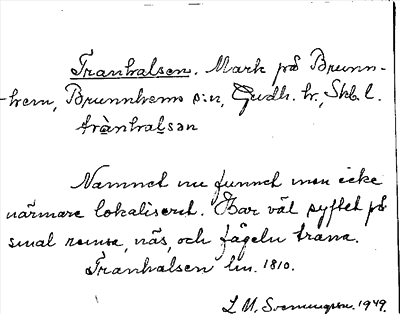 Tranhalsen. Mark på Brunn-
hem, Brunnhems s:n, Gudh. hr., Skb. l.
trànhalsən
Namnet nu funnet men icke
närmare lokaliserat. Har väl syftet på
smal remsa, näs, och fågeln trana.
Tranhalsen lm. 1810.
L. M. Svenungson. 1949.